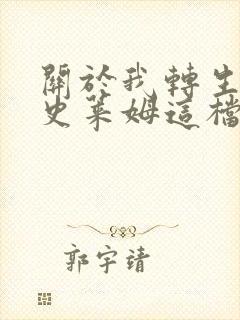 關於我轉生
史萊姆這檔
郭宇靖